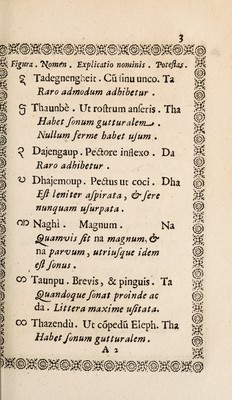 3
Figura. Nomen. Explicatio nominis. Potestas.
Tadegnengheit. Cū sinu unco. Ta
Raro admodum adhibetur.
Thaunbè. Ut rostrum anseris. Tha
Habet sonum gutturalem.
Nullum ferme habet usum.
ဒ Dajengaup. Pectore inflexo. Da
Raro adhibetur.
ဎ Dhajemoup. Pectus ut coci. Dha
Est leniter aspirata, & fere
nunquam usurpata.
ဏ Naghi. Magnum. Na
Quamvis sit na magnum, &
na parvum, utriusque idem
est sonus.
တ Taunpu. Brevis, & pinguis. Ta
Quandoque sonat proinde ac
da. Littera maxime usitata.
ထ Thazendù. Ut cōpedū Eleph. Tha
Habet sonum gutturalem.
A 2